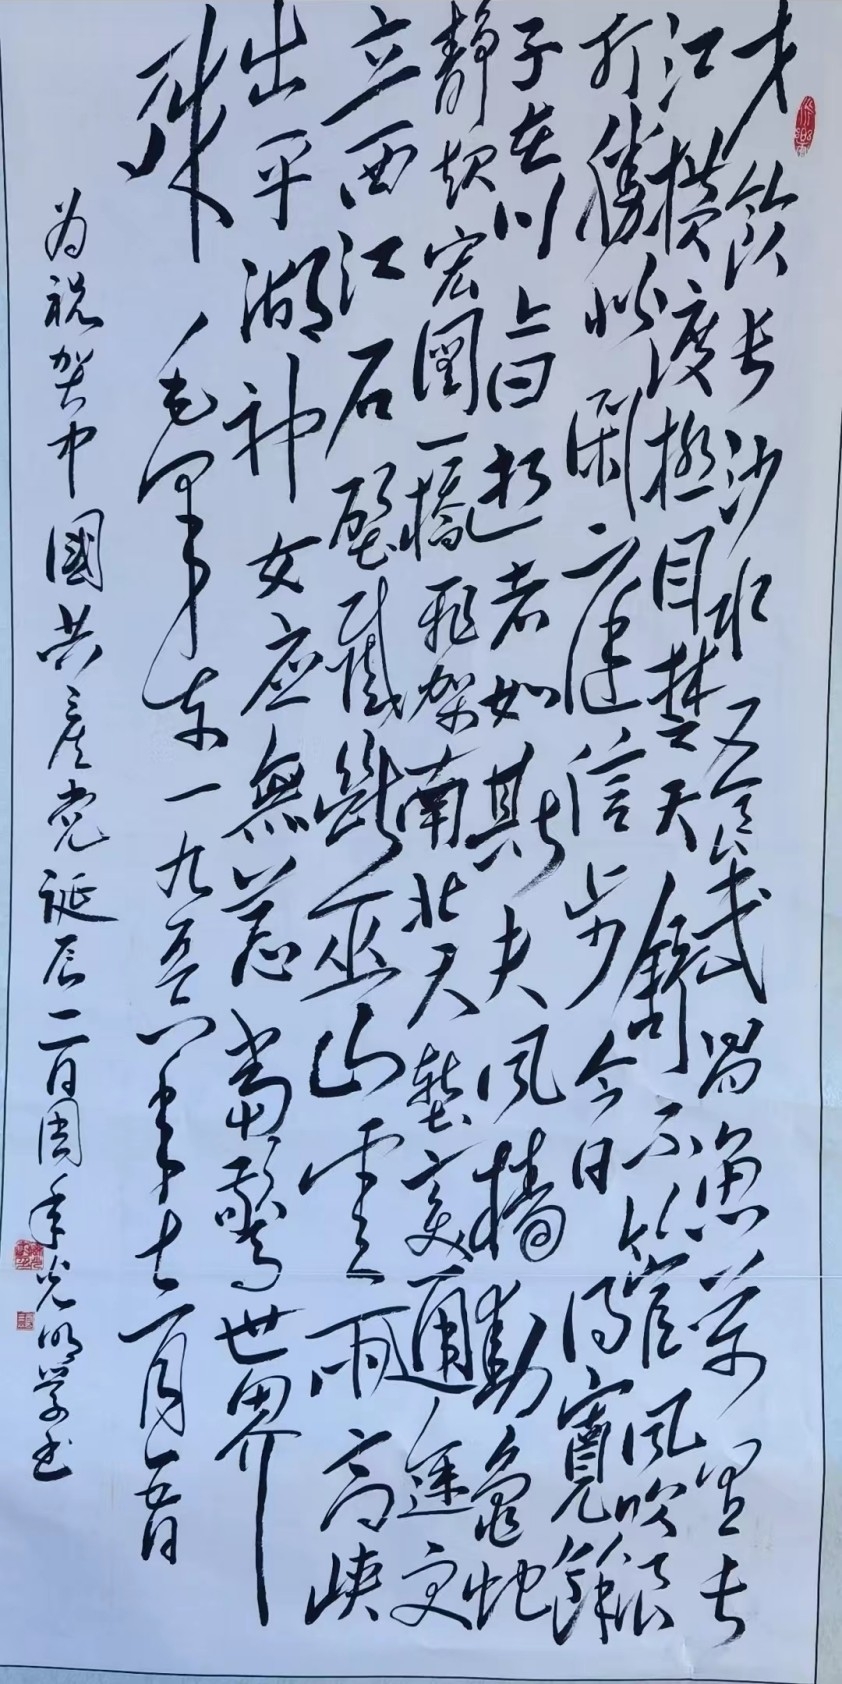 才飲长沙水又食武昌魚萬里长
江橫渡極目楚天舒不管風吹浪
打勝似閑庭信步今日得寬餘
子在川上曰逝者如斯夫風檣動龜蛇
静起宏圖一橋飛架南北天塹變通途更
立西江石壁截斷巫山雲雨高峡
出平湖神女应無恙當驚世界
殊 毛泽东一九五六年十二月五日
为祝贺中國共产党誕辰一百周年光明学书